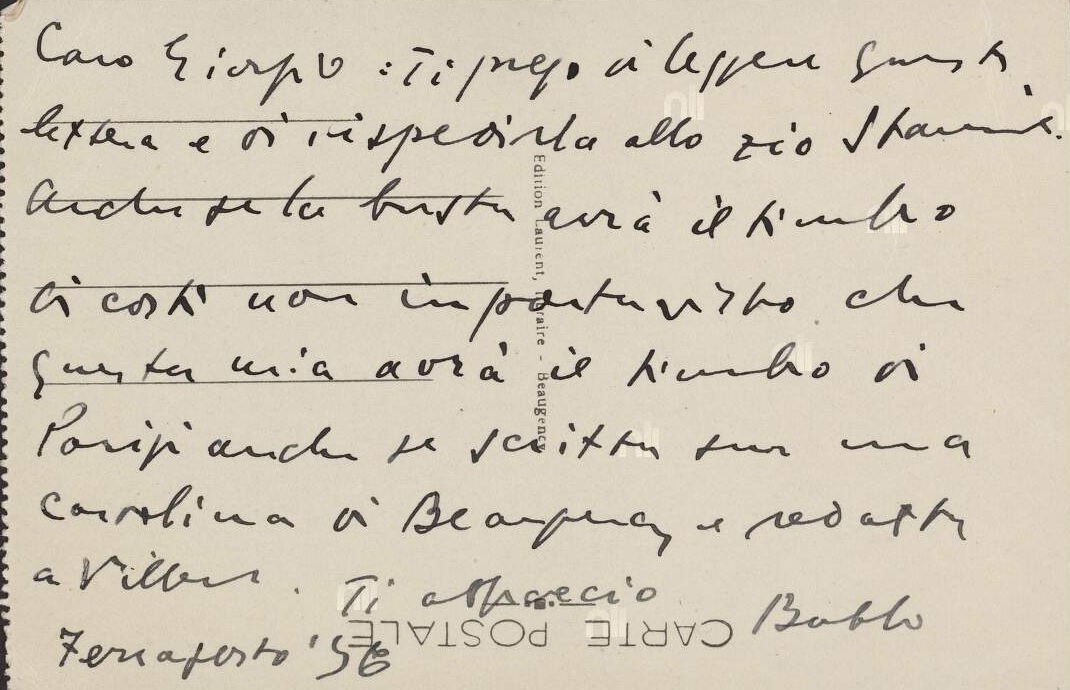 Caro Giorgio : Ti prego di leggere questa
lettera e di rispedirla allo zio Stannie.
Anche se la busta avrà il timbro
di costì non importa visto che
questa mia avrà il timbro di
Parigi anche se scritta sur una
cartolina di Beaugency e redatta
a Villers. Ti abbraccio
Babbo
Ferragosto '36
Edition Laurent, libraire - Beaugency
CARTE POSTALE